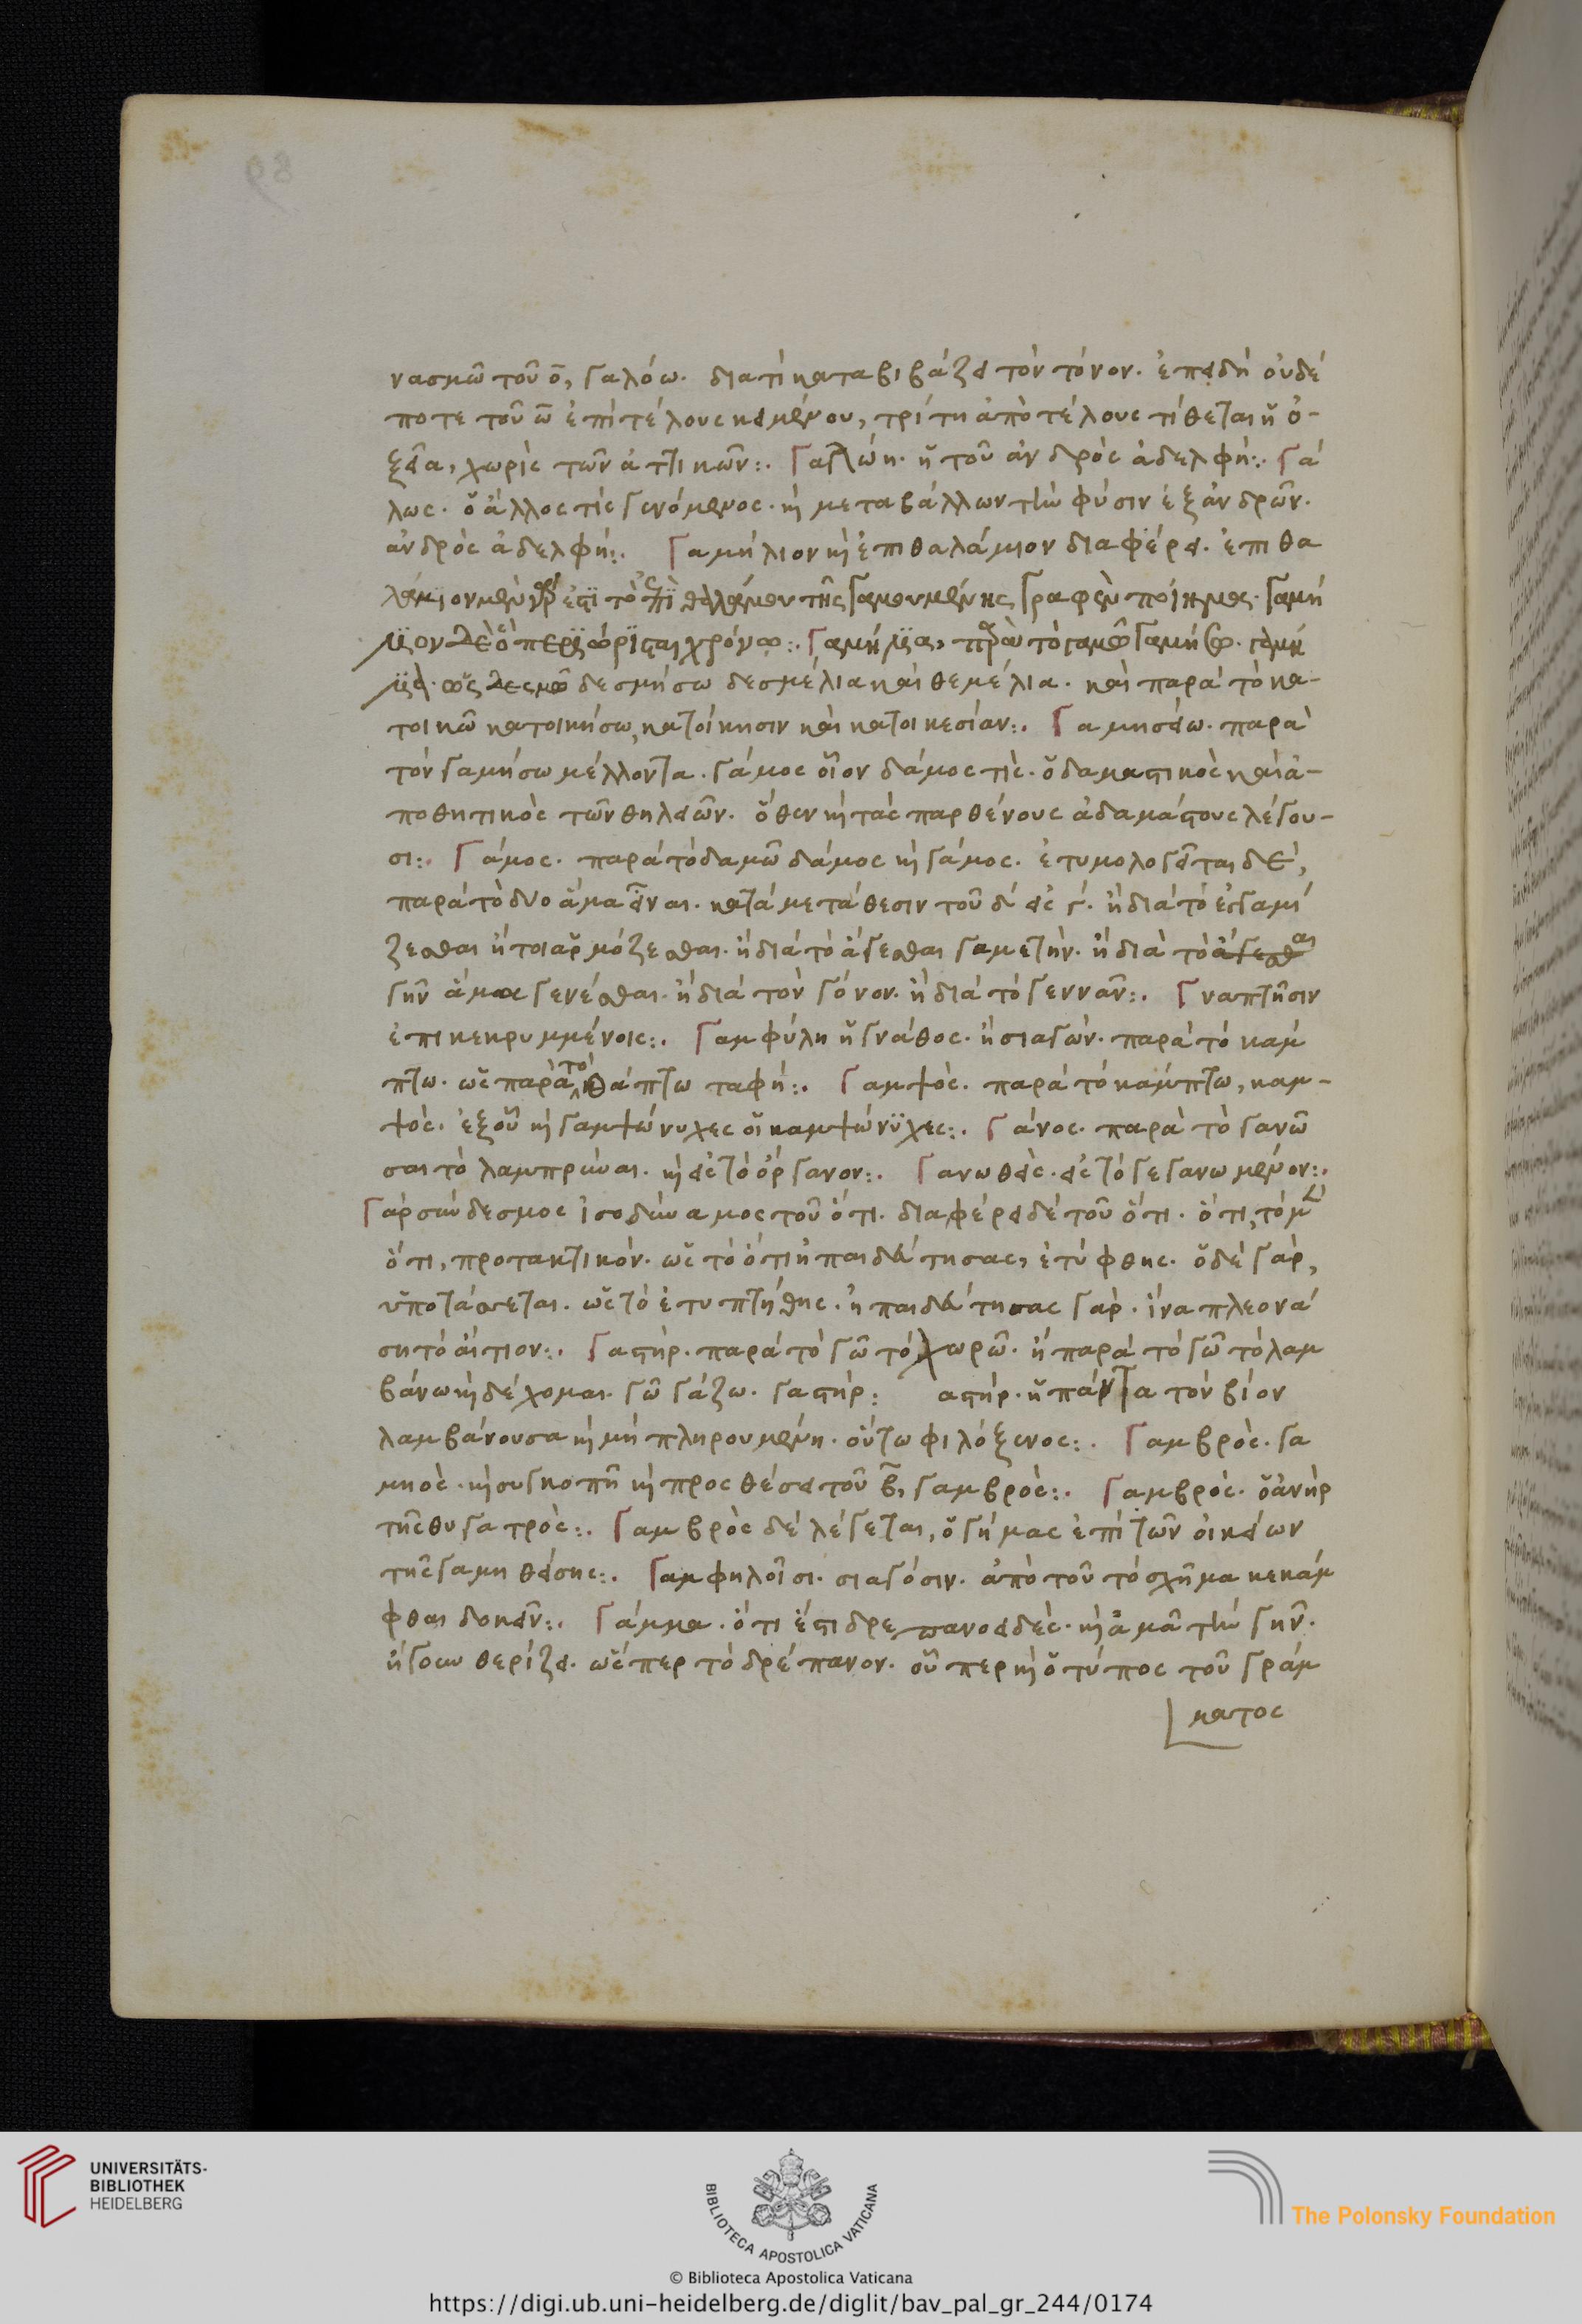 νασμῶ τοῦ ο̄, γαλόω. διατὶ καταβιβάζει τὸν τόνον. ἐπειδὴ οὐδέ
ποτε τοῦ ω̄ ἐπὶ τέλους κειμένου, τρίτη ἀπὸ τέλους τίθεται ἡ ὀ-
ξεῖα, χωρὶς τῶν ἀττικῶν:. Γαλώη. ἡ τοῦ ἀνδρὸς ἀδελφή:. Γά
λως. ὁ ἄλλος τίς γενόμενος. καὶ μεταβάλλων τὴν φύσιν ἐξ ἀνδρῶν.
ἀνδρὸς ἀδελφή:. Γαμήλιον καὶ ἐπιθαλάμιον διαφέρει. ἐπιθα
λάμιον μὲν γάρ ἐστι τὸ ἐπὶ θαλάμου τῆς γαμουμένης γραφὲν ποίημα. γαμή
λιον δὲ ὅπερ ὥρισται χρόνω:. Γαμήλια, παρὰ τὸ γαμῶ γαμήσω. γαμή
λια. ὡς δεσμῶ δεσμήσω δεσμέλια καὶ θεμέλια. καὶ παρὰ τὸ κα-
τοικῶ κατοικήσω, κατοίκησιν καὶ κατοικεσίαν:. Γαμησείω. παρὰ
τὸν γαμήσω μέλλοντα. γάμος οἷον δάμος τίς. ὁ δαμαστικὸς καὶ ἀ-
ποθητικὸς τῶν θηλειῶν. ὅθεν καὶ τὰς παρθένους ἀδαμάστους λέγου-
σι:. Γάμος. παρὰ τὸ δαμῶ δάμος καὶ γάμος. ἐτυμολογεῖται δὲ,
παρὰ τὸ δύο ἅμα εἶναι. κατὰ μετάθεσιν τοῦ δ εἰς γ. ἢ διὰ τὸ εἰς γαμί
ζεσθαι ἤτοι ἁρμόζεσθαι. ἢ διὰ τὸ ἄγεσθαι γαμετήν. ἢ διὰ τὸ ἄγεσθαι
γῆν ἅμα γενέσθαι. ἢ διὰ τὸν γόνον. ἢ διὰ τὸ γεννᾶν:. Γναπτῆσιν
ἐπικεκρυμμένοις:. Γαμφύλη ἡ γνάθος. ἡ σιαγών. παρὰ τὸ κάμ
πτω. ὡς παρὰ τὸ θάπτω ταφή:. Γαμψός. παρὰ τὸ κάμπτω, καμ-
ψός. ἐξ οὗ καὶ γαμψώνυχες οἱ καμψώνυχες:. Γάνος. παρὰ τὸ γανῶ
σαι τὸ λαμπρύναι. καὶ εἰς τὸ ὄργανον:. Γανωθείς. εἰς τὸ γεγανωμένον:.
Γάρ σύνδεσμος ἰσοδύναμος τοῦ ὅτι. διαφέρει δὲ τοῦ ὅτι. ὅτι, τὸ μὲν
ὅτι, προτακτικόν. ὡς τὸ ὅτι ἠπαιδεύτησας, ἐτύφθης. ὁ δὲ γάρ,
ὑποτάσσεται. ὡς τὸ ἐτυπτήθης. ἠπαιδεύτησας γάρ. ἵνα πλεονά
ση τὸ αἴτιον:. Γαστήρ. παρὰ τὸ γῶ τὸ χωρῶ. ἢ παρὰ τὸ γῶ τὸ λαμ
βάνω καὶ δέχομαι. γῶ γάζω. γαστήρ: αστήρ. ἡ πάντα τὸν βίον
λαμβάνουσα καὶ μὴ πληρουμένη. οὕτω φιλόξενος:. Γαμβρός. γα
μηός. καὶ συγκοπῆ καὶ προσθέσει τοῦ β̄, γαμβρός:. Γαμβρός. ὁ ἀνὴρ
τῆς θυγατρός:. Γαμβρὸς δὲ λέγεται, ὁ γήμας ἐπὶ τῶν οἰκείων
τῆς γαμηθείσης:. Γαμφηλοῖσι. σιαγόσιν. ἀπὸ τοῦ τὸ σχῆμα κεκάμ
φθαι δοκεῖν:. Γάμμα. ὅτι ἔστι δρεπανοειδές. καὶ ἀμᾶ τὴν γῆν.
ἤγουν θερίζει. ὥσπερ τὸ δρέπανον. οὗπερ καὶ ὁ τύπος τοῦ γράμ
ματος
UNIVERSITÄTS-
BIBLIOTHEK
HEIDELBERG
BIBLIOTECA APOSTOLICA VATICANA
The Polonsky Foundation
© Biblioteca Apostolica Vaticana
https://digi.ub.uni-heidelberg.de/diglit/bav_pal_gr_244/0174